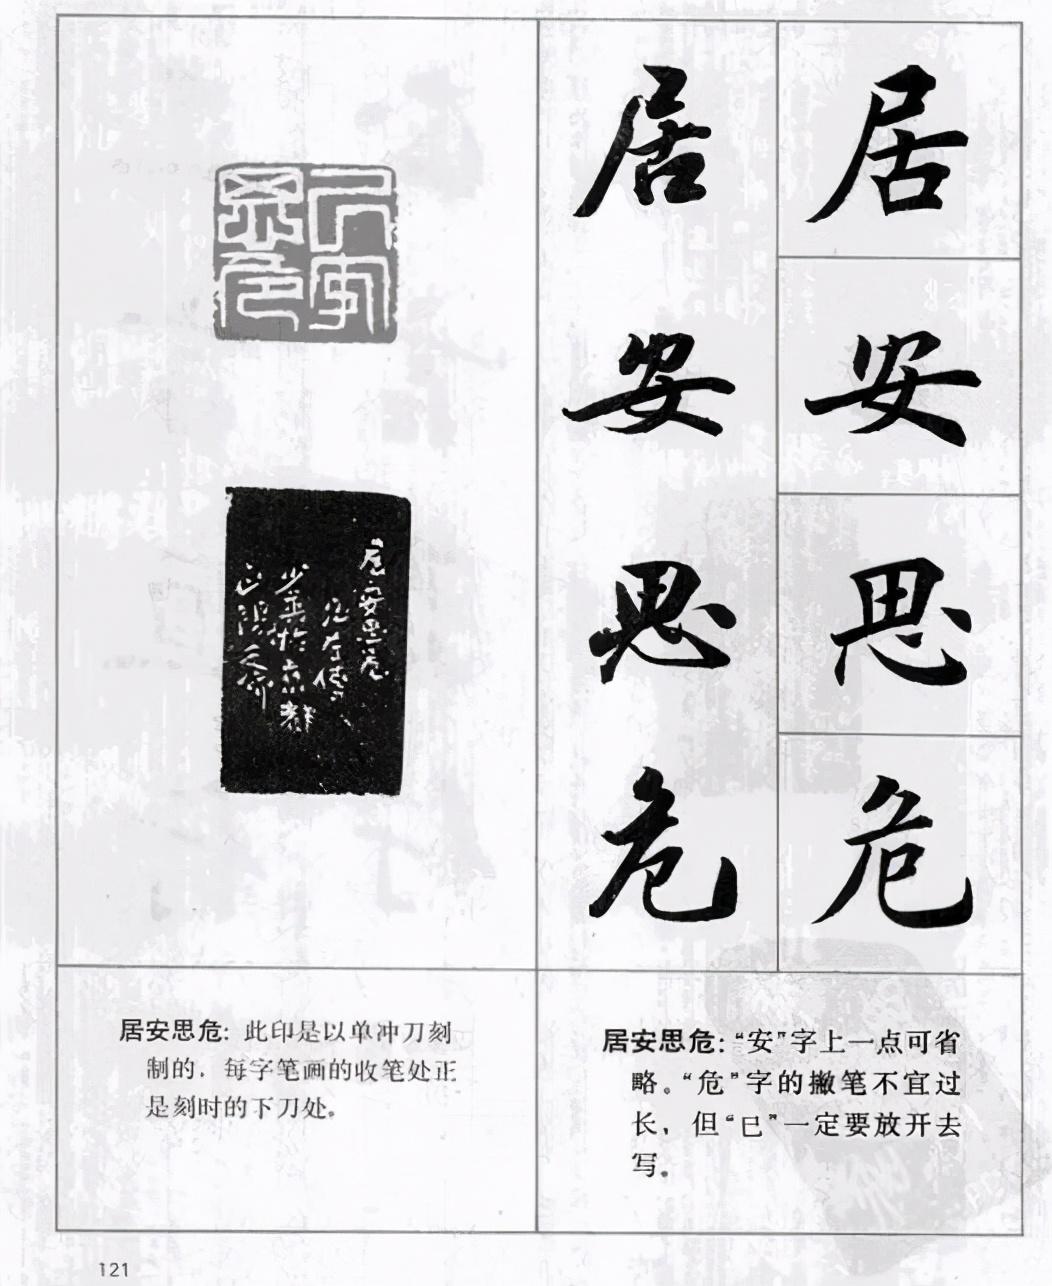 居安思危
居安思危
居安
思危
居安思危
见左传
居安思危：此印是以单冲刀刻
制的，每字笔画的收笔处正
是刻时的下刀处。
居安思危：“安”字上一点可省
略。“危”字的撇笔不宜过
长，但“巳”一定要放开去
写。
121